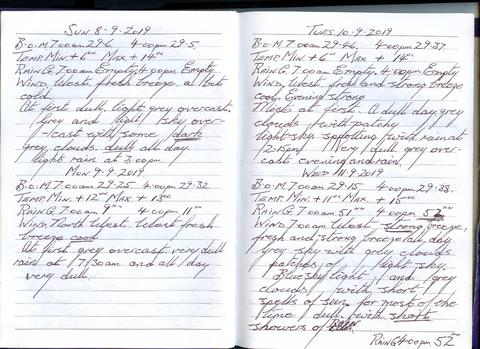 SUN 8-9-2019
B.O.M 7.00am 29.6. 4.00pm 29.5.
TEMP. MIN. + 6°c MAX. + 14°c
RAIN G. 7.00am Empty. 4.00pm Empty
WIND, West, fresh breeze, a bit
cold
At first dull, light grey overcast.
Grey and light sky over-
-cast with some dark
grey clouds. dull all day
light rain at 3.00pm.
MON 9-9-2019
B.O.M 7.00am 29.25 4.00pm 29.32
TEMP. MIN. + 12°c MAX + 13°c
RAIN G. 7.00am 9mm 4.00pm 11mm
WIND, North West, West fresh
breeze cool
At first grey overcast, very dull
rain at 7.30am and all day
very dull.
TUES. 10-9-2019
B.O.M 7.00am 29.46. 4.00pm 29.37.
TEMP. MIN + 6°c MAX + 14°c
RAIN G. 7.00am Empty. 4.00pm Empty
WIND, West, fresh and strong breeze
cool, Evening strong
Night at first. A dull day, grey
clouds with patchy
light sky, spotting with rain at
2.15pm Very dull grey over-
cast evening and rain.
WED 11-9-2019
B.O.M 7.00am 29.15 4.00pm 29.38.
TEMP. MIN + 11°c MAX. + 15°c
RAIN G. 7.00am 51mm 4.00pm 52mm
WIND, 7.00am West strong breeze,
fresh and strong breeze all day
Grey sky with grey clouds
patches of light sky.
Blue sky light and grey
clouds with short
spells of sun, for most of the
time dull. with short
showers of RAIN
RAIN G 4.00pm 52mm